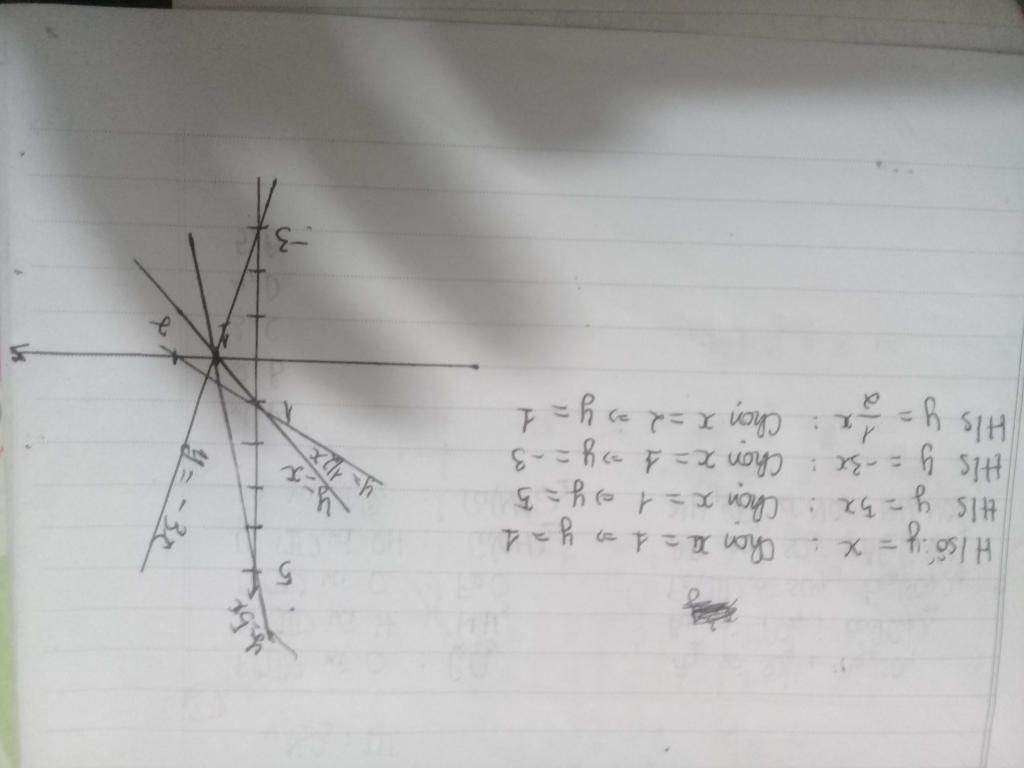 H/số: y = x : Chọn x = 1 ⇒ y = 1
H/s y = 5x : Chọn x = 1 ⇒ y = 5
H/s y = -3x : Chọn x = 1 ⇒ y = -3
H/s y = 1/2 x : Chọn x = 2 ⇒ y = 1
y=5x
5
y=x
y=1/2x
y = -3x
1
1
2
-3